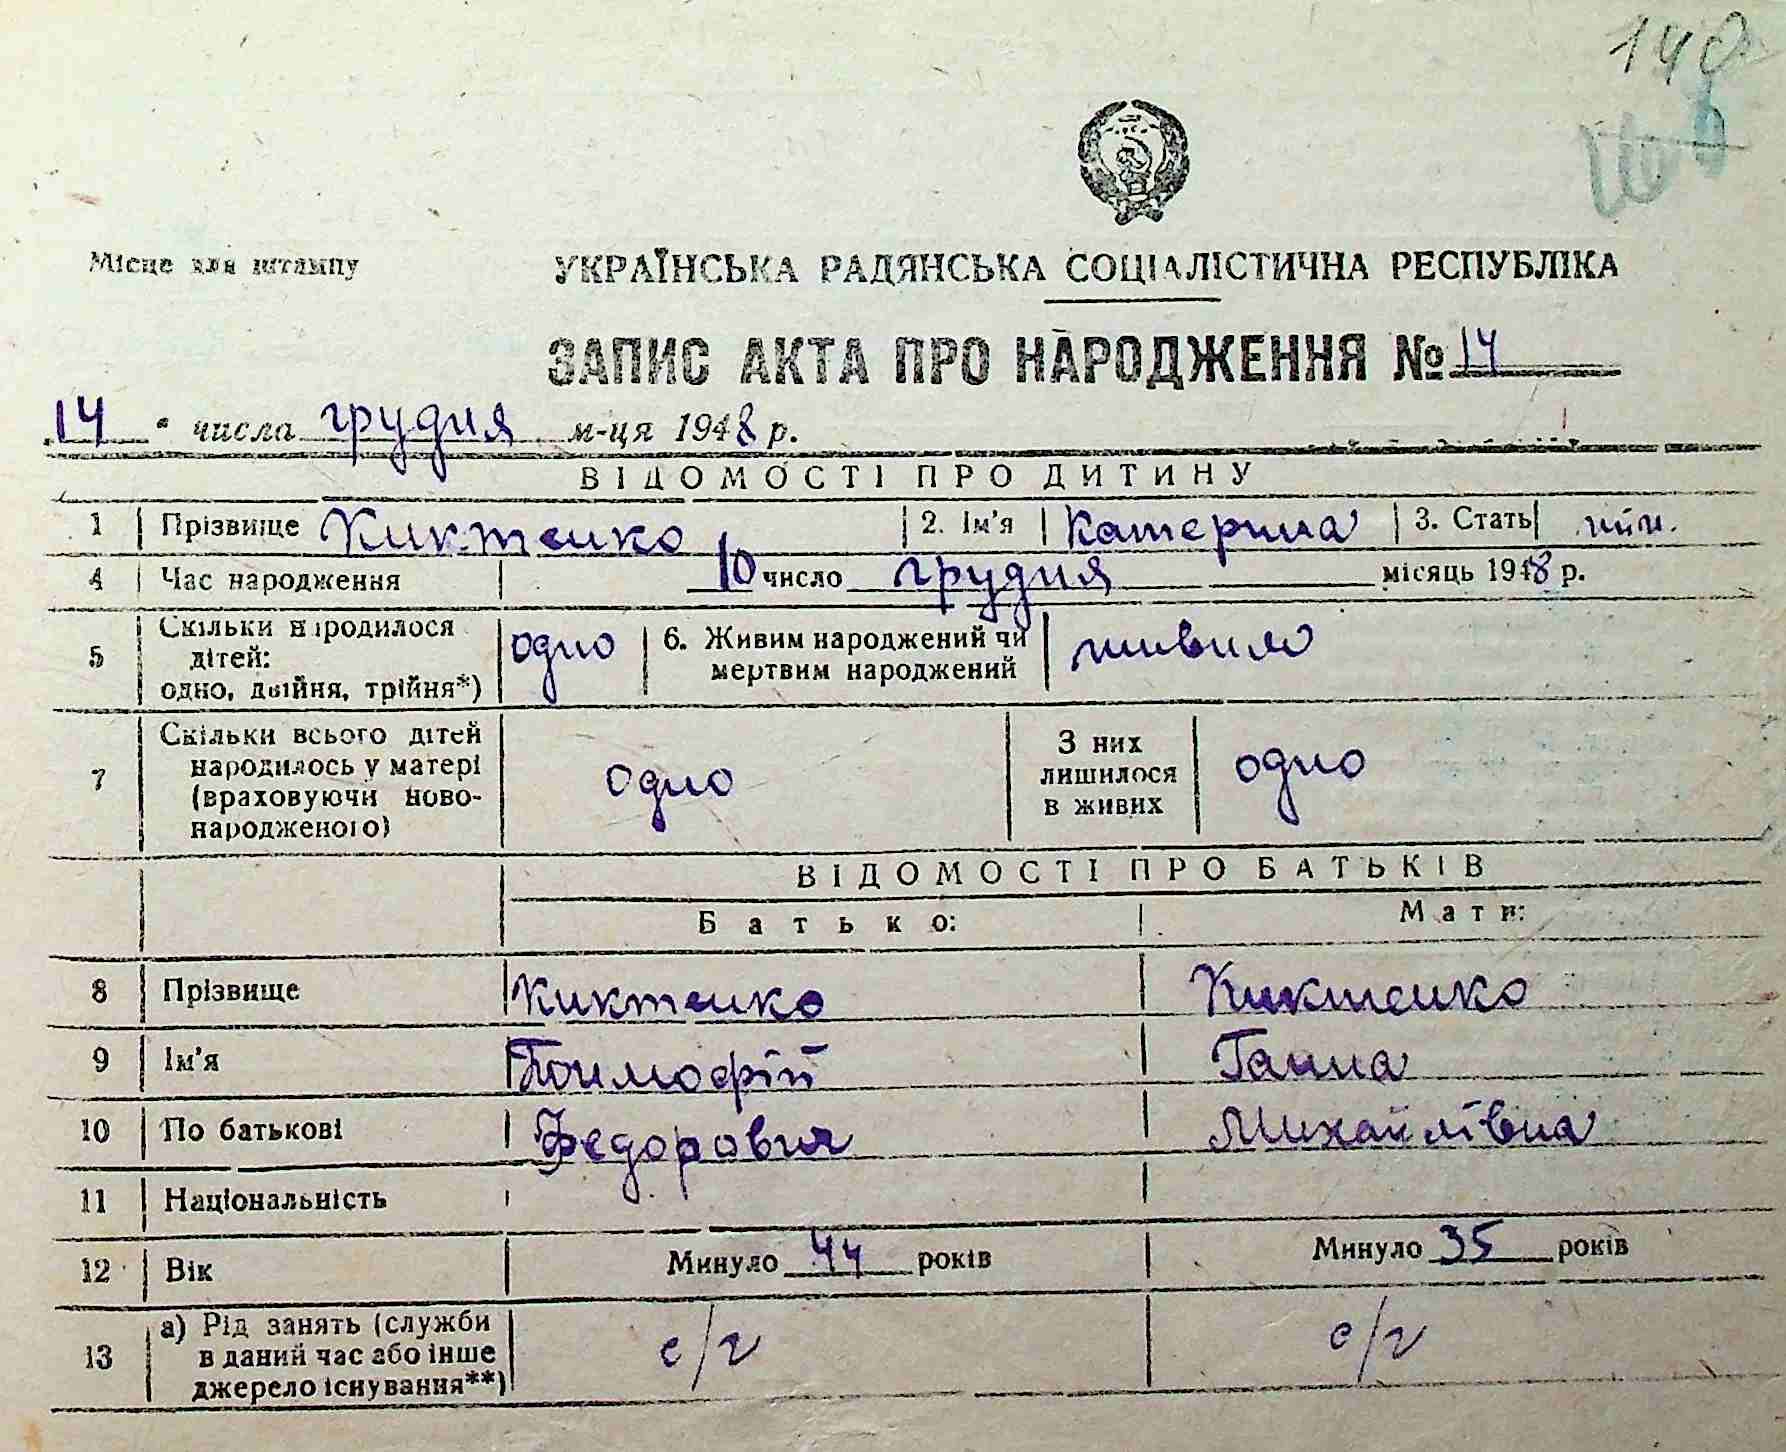 140
Місце для штампу
УКРАЇНСЬКА РАДЯНСЬКА СОЦІАЛІСТИЧНА РЕСПУБЛІКА
ЗАПИС АКТА ПРО НАРОДЖЕННЯ № 14
14 " числа грудня м-ця 1948 р.
ВІДОМОСТІ ПРО ДИТИНУ
1 Прізвище Киктенко 2. Ім'я Катерина 3. Стать жін.
4 Час народження 10 число грудня місяць 1948 р.
5 Скільки народилося дітей: одно, двійня, трійня*) одно 6. Живим народжений чи мертвим народжений живим
7 Скільки всього дітей народилось у матері (враховуючи новонародженого) одно З них лишилося в живих одно
ВІДОМОСТІ ПРО БАТЬКІВ
Батько: Мати:
8 Прізвище Киктенко Киктенко
9 Ім'я Тимофій Ганна
10 По батькові Федорович Михайлівна
11 Національність
12 Вік Минуло 44 років Минуло 35 років
13 а) Рід занять (служби в даний час або інше джерело існування**) с/г с/г